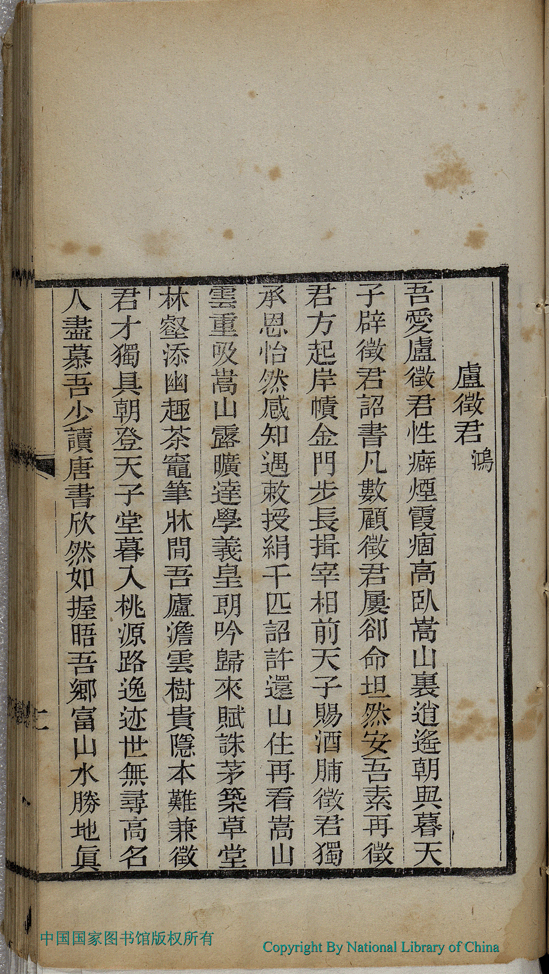 盧徵君鴻
吾愛盧徵君性癖煙霞痼高臥嵩山裏逍遙朝與暮天
子辟徵君詔書凡數顧徵君屢卻命坦然安吾素再徵
君方起岸幘金門步長揖宰相前天子賜酒脯徵君獨
承恩怡然感知遇敕授絹千匹詔許還山住再看嵩山
雲重吸嵩山露曠達學義皇朝吟歸來賦誅茅築草堂
林壑添幽趣茶竈筆牀閒吾廬澹雲樹貴隱本難兼徵
君才獨具朝登天子堂暮入桃源路逸迹世無尋高名
人盡慕吾少讀唐書欣然如握晤吾鄉富山水勝地眞
二
中国国家图书馆版权所有
Copyright By National Library of China